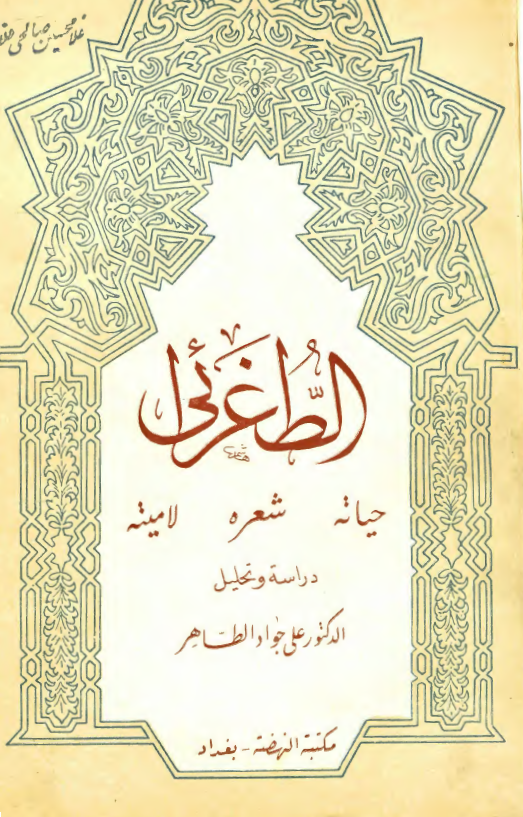 غلامحسين صالحي
الطُّغَرائي
حياته شعره لاميته
دراسة وتحليل
الدكتور علي جواد الطاهر
مكتبة النهضة - بغداد